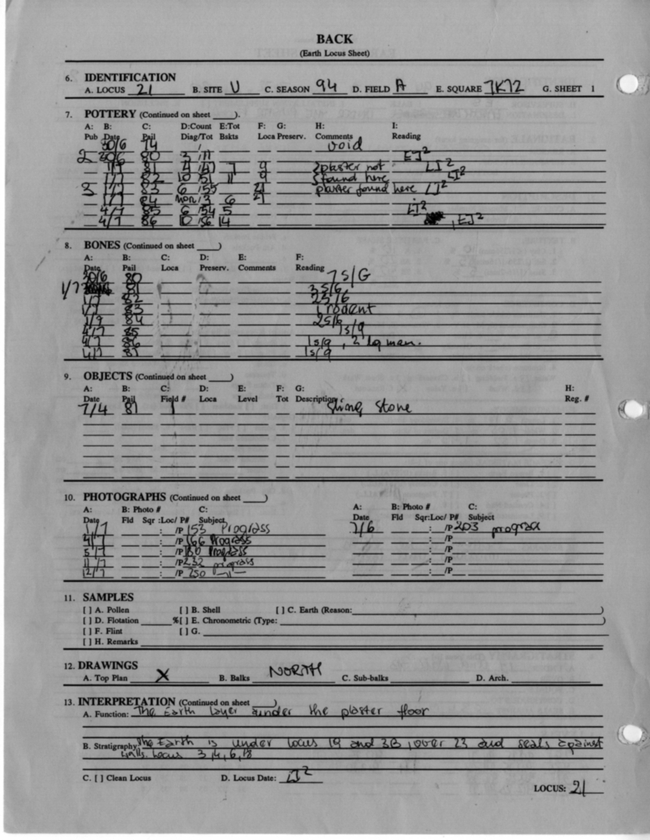 BACK
(Earth Locus Sheet)
6. IDENTIFICATION
A. LOCUS 21 B. SITE U C. SEASON 94 D. FIELD A E. SQUARE 7K72 G. SHEET 1
7. POTTERY (Continued on sheet ____).
A: B: C: D:Count E:Tot F: G: H: I:
Pub Date Pail Diag/Tot Bskts Loca Preserv. Comments Reading
30/6 79 void
2 30/6 80 3/11 EJ²
1/7 81 7 9 plaster not LJ²
1/7 82 11 9 found here LJ²
3 1/7 83 6/55 21 plaster found here LJ²
1/7 84 6 21
4/7 85 6/54 5 LJ²
4/7 86 10/56 14 , EJ²
8. BONES (Continued on sheet ____)
A: B: C: D: E: F:
Date Pail Loca Preserv. Comments Reading
30/6 80 7 S/G
1/7 81 3 S/G
1/7 82 2 S/G
1/7 83 1 rodent
84 2 S/g
4/7 85 1 s/g
4/7 86 1 s/g, 2 lg mam.
4/7 1 s/g
9. OBJECTS (Continued on sheet ____)
A: B: C: D: E: F: G: H:
Date Pail Field # Loca Level Tot Description: Reg. #
7/4 81 1 Sling Stone
10. PHOTOGRAPHS (Continued on sheet ____)
A: B: Photo # C: A: B: Photo # C:
Date Fld Sqr:Loc/ P# Subject Date Fld Sqr:Loc/ P# Subject
1/7 : /P 153 Progress 7/6 : /P 203 progress
4/7 : /P 166 Progress : /P
5/7 : /P 180 Progress : /P
11/7 : /P 232 progress : /P
12/7 : /P 250 -"- : /P
11. SAMPLES
[ ] A. Pollen [ ] B. Shell [ ] C. Earth (Reason: )
[ ] D. Flotation %[ ] E. Chronometric (Type: )
[ ] F. Flint [ ] G.
[ ] H. Remarks
12. DRAWINGS
A. Top Plan X B. Balks NORTH C. Sub-balks D. Arch.
13. INTERPRETATION (Continued on sheet ____)
A. Function: The Earth layer under the plaster floor
B. Stratigraphy: The Earth is under locus 19 and 3B, over 23 and seals against
walls. Locus 3,4,6,18
C. [ ] Clean Locus D. Locus Date: LJ²
LOCUS: 21